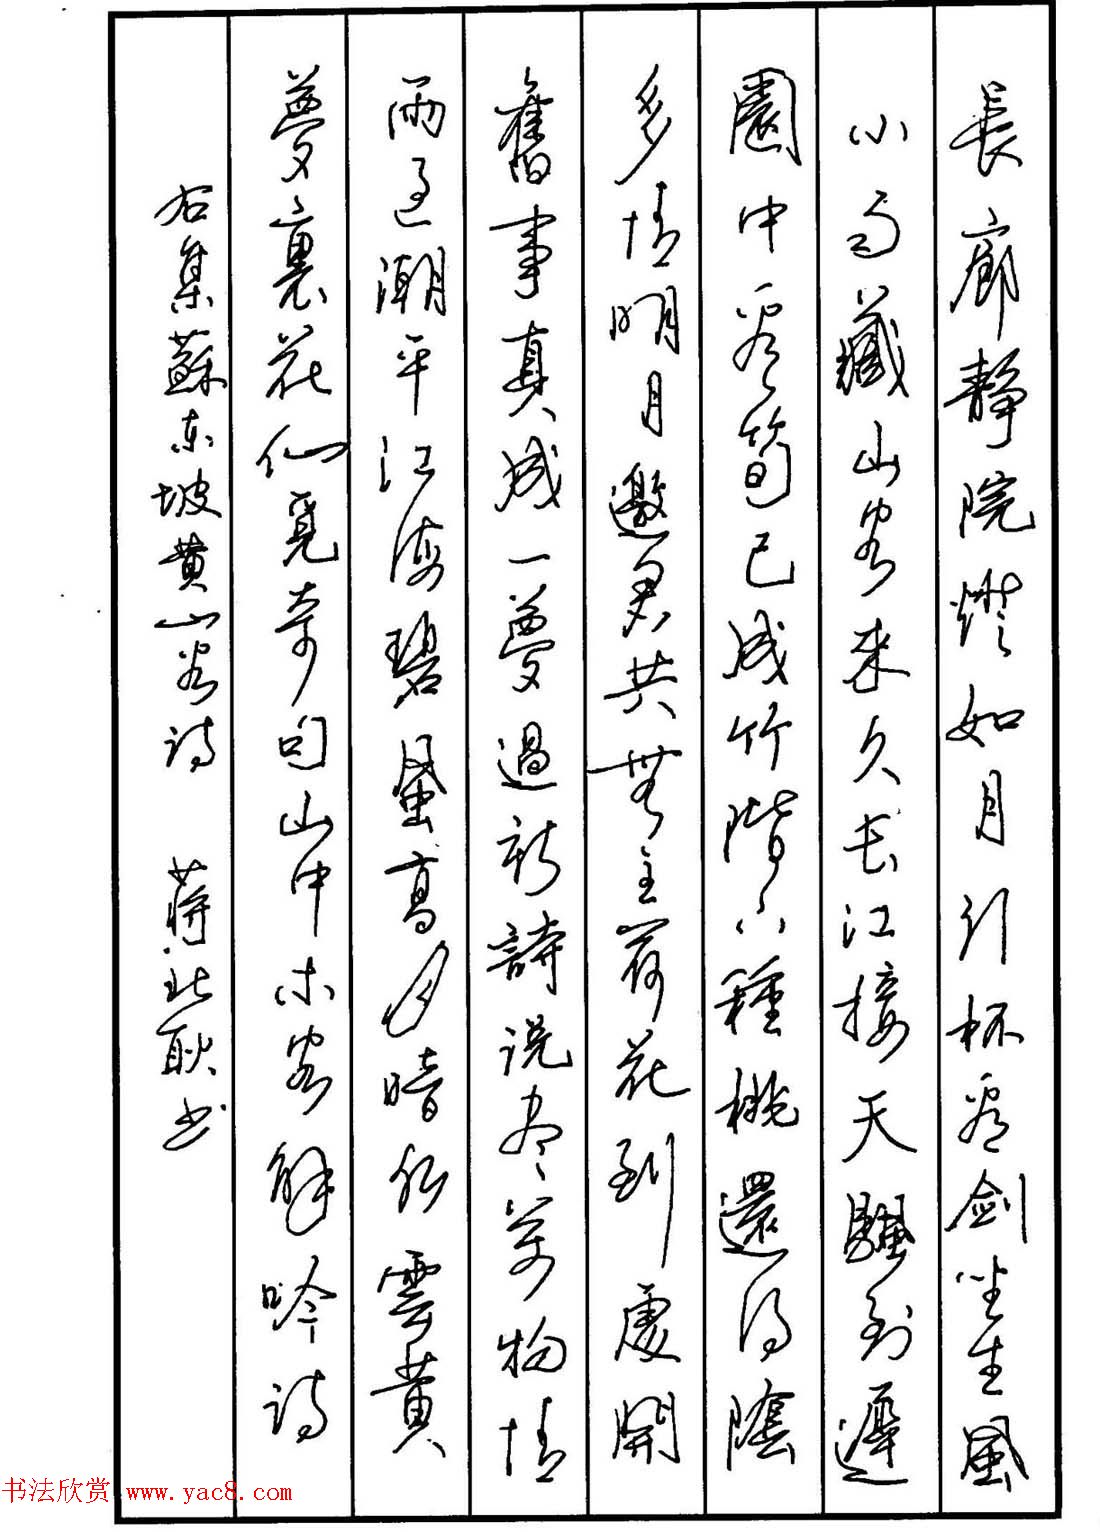 長廊静院燈如月引杯看劍坐生風
小雨藏山客来久长江接天颿到遲
園中看筍已成竹階下種桃還得陰
多情明月邀君共無主荷花到處開
舊事真成一夢過新詩说尽萬物情
雨過潮平江海碧風高月暗水雲黄
夢裏花仙覓奇句山中木客解吟诗
右集蘇东坡黄山谷诗 蒋北耿书
书法欣赏 www.yac8.com